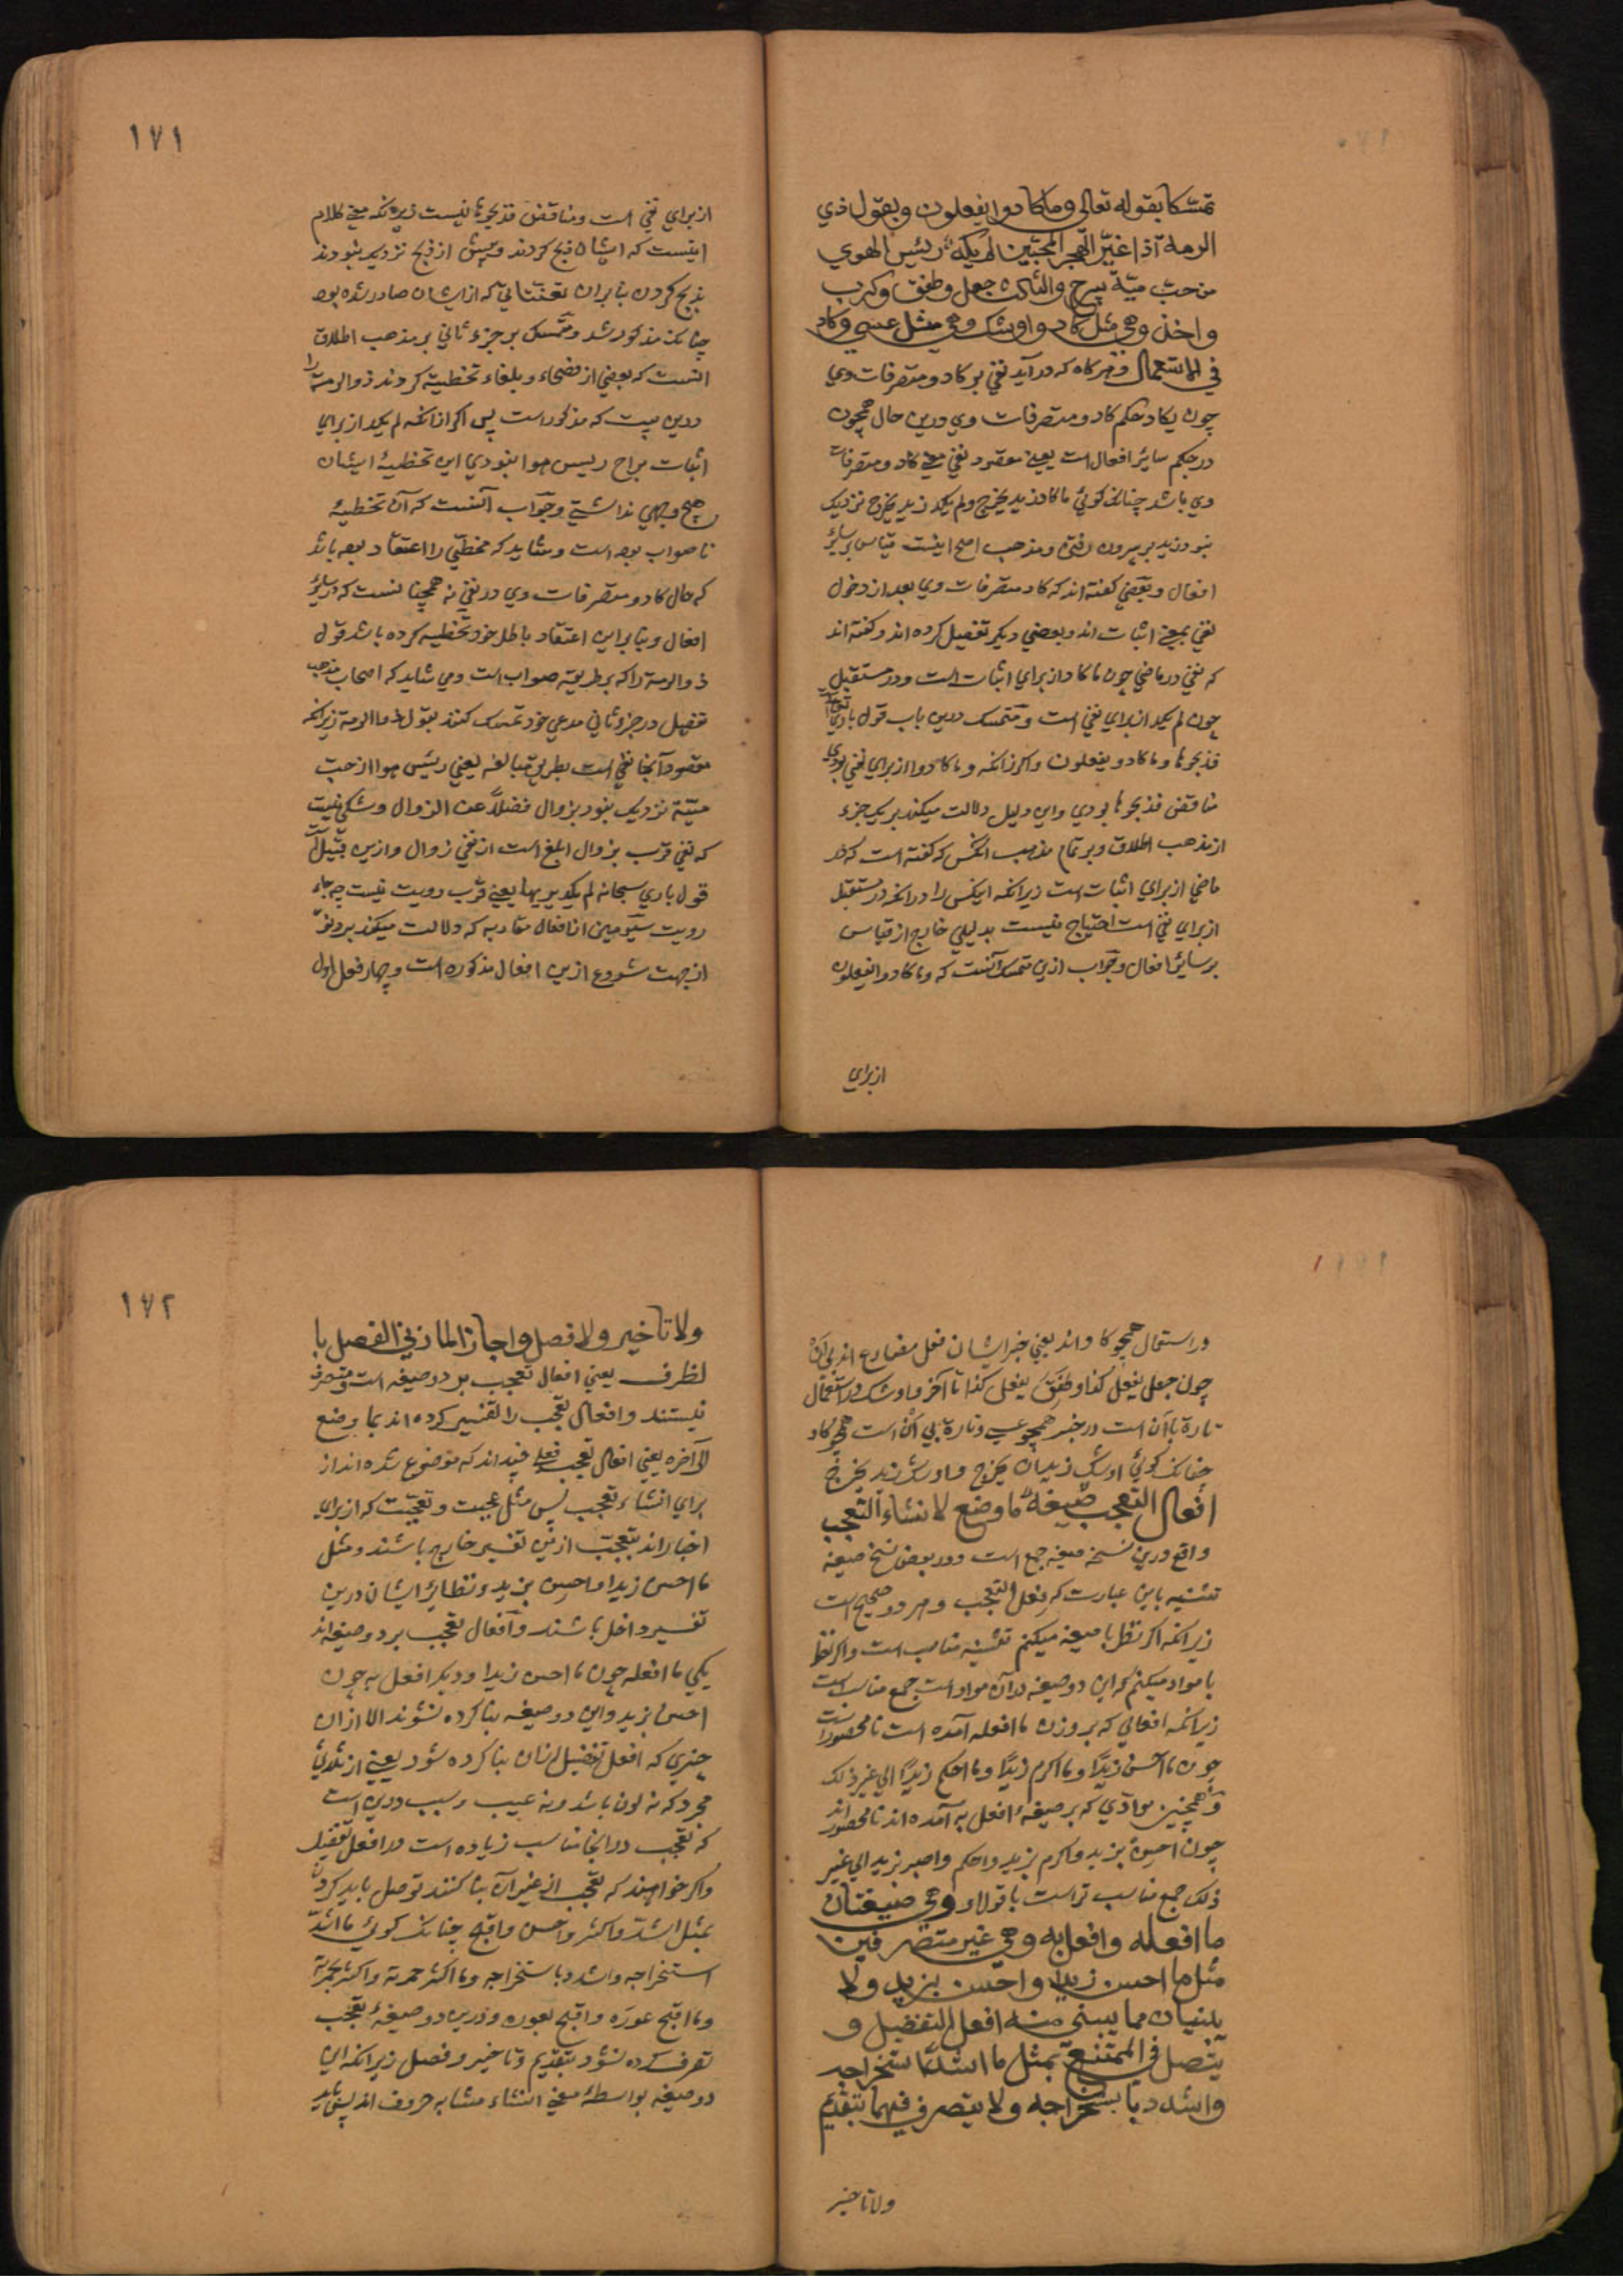 تمسّكا بقوله تعالى وما كادوا يفعلون وبقول ذي
الرمة اذا غيّر الهجر المحبّين لم يكد رسيس الهوي
من حبّ ميّة يبرح والثالث جعل وطفق وكرب
واخذ وهي مثل كاد واوشك وهي مثل عسي وكاد
في الاستعمال وهركاه كه در آيد نفي بر كاد ومتصرفات وي
چون يكاد حكم كاد ومتصرفات وي درين حال همچون
در حكم ساير افعال است يعني مقصود نفي معني كاد ومتصرفات
وي باشد چنانكه كوئي ما كاد زيد يخرج ولم يكد زيد يخرج نزديك
نبود زيد بر بيرون رفتن ومذهب اصح اينست قياس بر ساير
افعال وبعضي كفته اند كه كاد ومتصرفات وي بعد از دخول
نفي بمعني اثبات اند وبعضي ديكر تفصيل كرده اند وكفته اند
كه نفي در ماضي چون ما كاد از براي اثبات است ودر مستقبل
چون لم يكد از براي نفي است ومتمسك درين باب قول باري تعالى
فذبحوها وما كادوا يفعلون واكر زانكه وما كادوا از براي نفي بودي
مناقض فذبحوها بودي واين دليل دلالت ميكند بر يك جزء
از مذهب اطلاق وبر تمام مذهب انكس كه كفته است كه در
ماضي از براي اثبات است زيرانكه اينكس را در انكه در مستقبل
از براي نفي است احتياج نيست بدليلي خارج از قياس
بر ساير افعال وجواب ازين متمسك آنست كه وما كادوا يفعلون
از براي
١٧١
از براي نفي است ومناقض فذبحوها نيست زيرانكه معني كلام
اينست كه ايشان ذبح كردند وپيش از ذبح نزديك نبودند
بذبح كردن بنا بران تعنتاتي كه از ايشان صادر شده بود
چنانكه مذكور شد ومتمسك بر جزء ثاني بر مذهب اطلاق
انست كه بعضي از فصحاء وبلغاء تخطيه كردند ذوالرمة را
درين بيت كه مذكورست پس اكر زانكه لم يكد از براي
اثبات براح رسيس هوا نبودي اين تخطيۀ ايشان
هيچ وجهي نداشتي وجواب آنست كه آن تخطيۀ
ناصواب بوده است وشايد كه مخطئي را اعتقاد بوده باشد
كه حال كاد ومتصرفات وي در نفي نه همچنانست كه در ساير
افعال وبنا براين اعتقاد باطل خود تخطيه كرده باشد قول
ذوالرمة را كه بر طريقۀ صواب است ومي شايد كه اصحاب مذهب
تفصيل در جزء ثاني مدعي خود تمسك كنند بقول ذوالرمة زيرانكه
مقصود آنجا نفي است بطريق مبالغه يعني رسيس هوا از حب
ميّة نزديك نبود بزوال فضلاً عن الزوال وشكي نيست
كه نفي قرب بزوال ابلغ است از نفي زوال وازين قبيل است
قول باري سبحانه لم يكد يريها يعني قرب رويت نيست چه جاء
رويت سيومين از افعال مقاربه كه دلالت ميكند بر دنوّ
از جهت شروع ازين افعال مذكوره است وچهار فعل اول
در استعمال همچو كاد اند يعني خبر ايشان فعل مضارع اند بي ان
چون جعل يفعل كذا وطفق يفعل كذا تا آخر واوشك در استعمال
تارة با ان است در خبر همچو عسي وتارة بي ان است همچو كاد
چنانكه كوئي اوشك زيد ان يخرج واوشك زيد يخرج
افعال التعجب صيغة ما وضع لانشاء التعجب
واقع درين نسخه صيغه جمع است ودر بعض نسخ صيغه
تثنيه باين عبارت كه فعلا التعجب وهر دو صحيح است
زيرانكه اكر نظر با صيغه ميكنم تثنيه مناسب است واكر نظر
با مواد ميكنم كه اين دو صيغه در آن مواد است جمع مناسب است
زيرانكه افعالي كه بر وزن ما افعله آمده است نامحصور است
چون ما احسن زيدًا وما اكرم زيدًا وما احكم زيدًا الي غير ذلك
وهمچنين موادّي كه بر صيغۀ افعل به آمده اند نامحصور اند
چون احسن بزيد واكرم بزيد واحكم واصبر بزيد الي غير
ذلك جمع مناسب تر است با قول او وهي صيغتان
ما افعله وافعل به وهي غير متصرفين
مثل ما احسن زيدا واحسن بزيد ولا
يبنيان مما يبنى منه افعل التفضيل و
يتصل في الممتنع بمثل ما اشد استخراجه
واشدد باستخراجه ولا يتصرف فيهما بتقديم
ولا تاخير
١٧٢
ولا تاخير ولا فصل واجاز المازني الفصل با
لظرف يعني افعال تعجب بر دو صيغه است ومتصرف
نيستند وافعال تعجب را تفسير كرده اند بما وضع
الي آخره يعني افعال تعجب فعلي چند اند كه موضوع شده اند از
براي انشاء تعجب پس مثل عجبت وتعجبت كه از براي
اخبار اند بتعجب ازين تفسير خارج باشند ومثل
ما احسن زيدا واحسن بزيد ونظاير ايشان درين
تفسير داخل باشند وافعال تعجب بر دو صيغه اند
يكي ما افعله چون ما احسن زيدا وديكر افعل به چون
احسن بزيد واين دو صيغه بنا كرده نشوند الا از ان
چيزي كه افعل تفضيل از ان بنا كرده شود يعني از ثلاثي
مجرد كه نه لون باشد ونه عيب وسبب درين است
كه تعجب در انجا مناسب زياده است در افعل تفضيل
واكر خواهند كه تعجب از غير آن بنا كنند توصل بايد كردن
بمثل اشد واكثر واحسن واقبح چنانكه كوئي ما اشدّ
استخراجه واشدد باستخراجه وما اكثر حمرته واكثر بحمرته
وما اقبح عوره واقبح بعوره ودرين دو صيغۀ تعجب
تصرف كرده نشود بتقديم وتاخير وفصل زيرانكه اين
دو صيغه بواسطۀ معني انشاء مشابه حروف اند پس نبايد